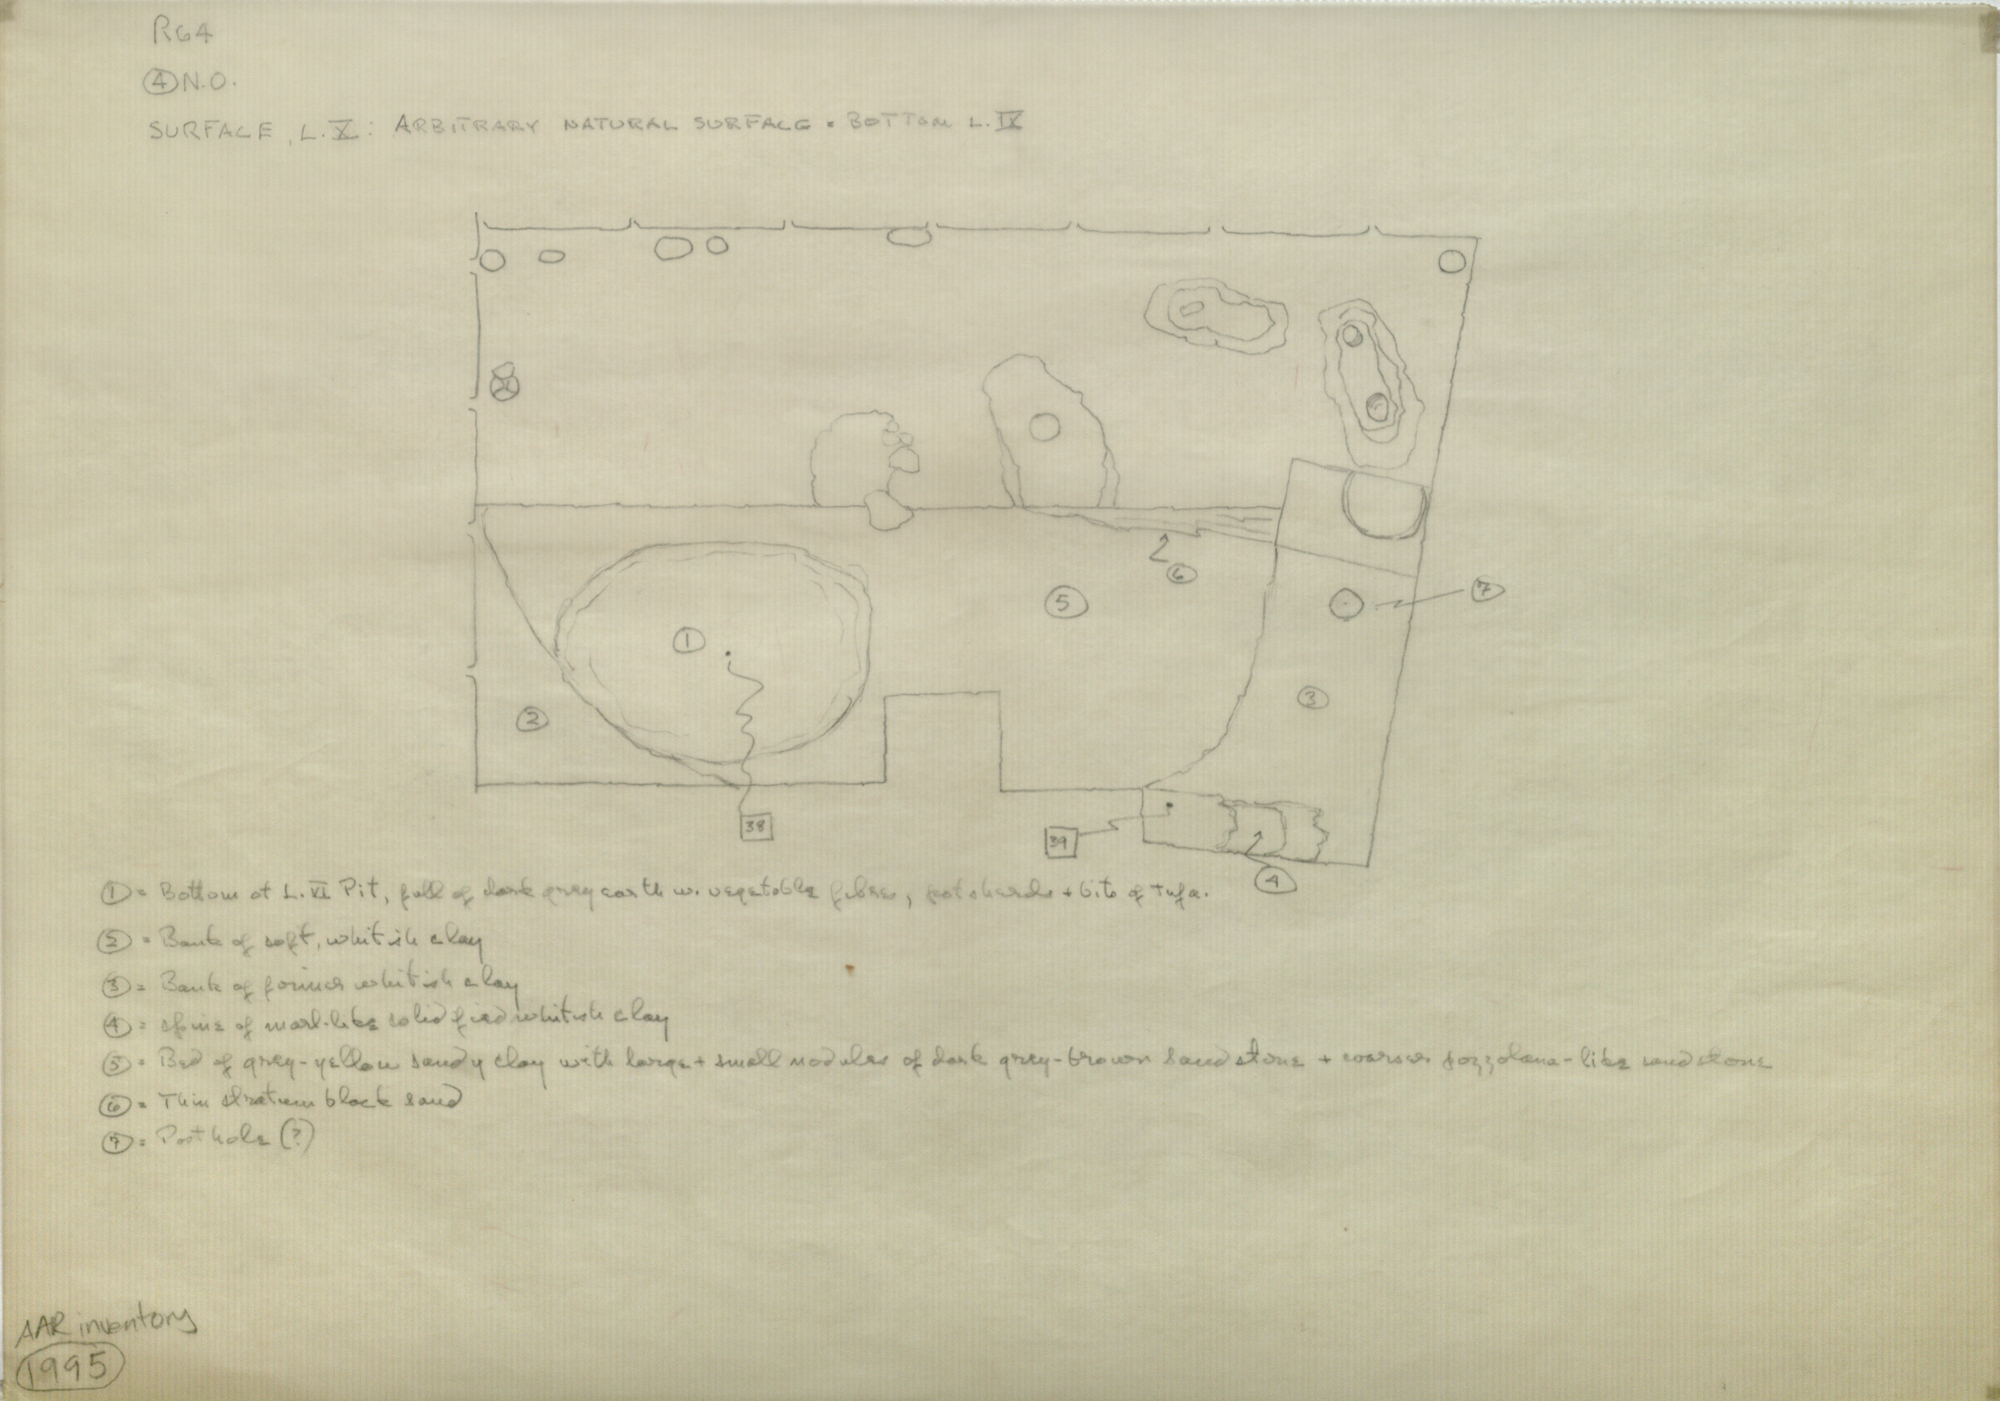 R64
④ N.O.
SURFACE, L. X: ARBITRARY NATURAL SURFACE = BOTTOM L. IX
6
5
7
1
3
2
38
39
4
① = Bottom of L. VI Pit, full of dark grey earth w. vegetable fibres, potsherds + bits of tufa.
② = Bank of soft, whitish clay
③ = Bank of firmer whitish clay
④ = spine of marl-like solidified whitish clay
⑤ = Bed of grey-yellow sandy clay with large + small nodules of dark grey-brown sandstone + coarser pozzolana-like sandstone
⑥ = Thin stratum black sand
⑦ = Posthole (?)
AAR inventory
1995